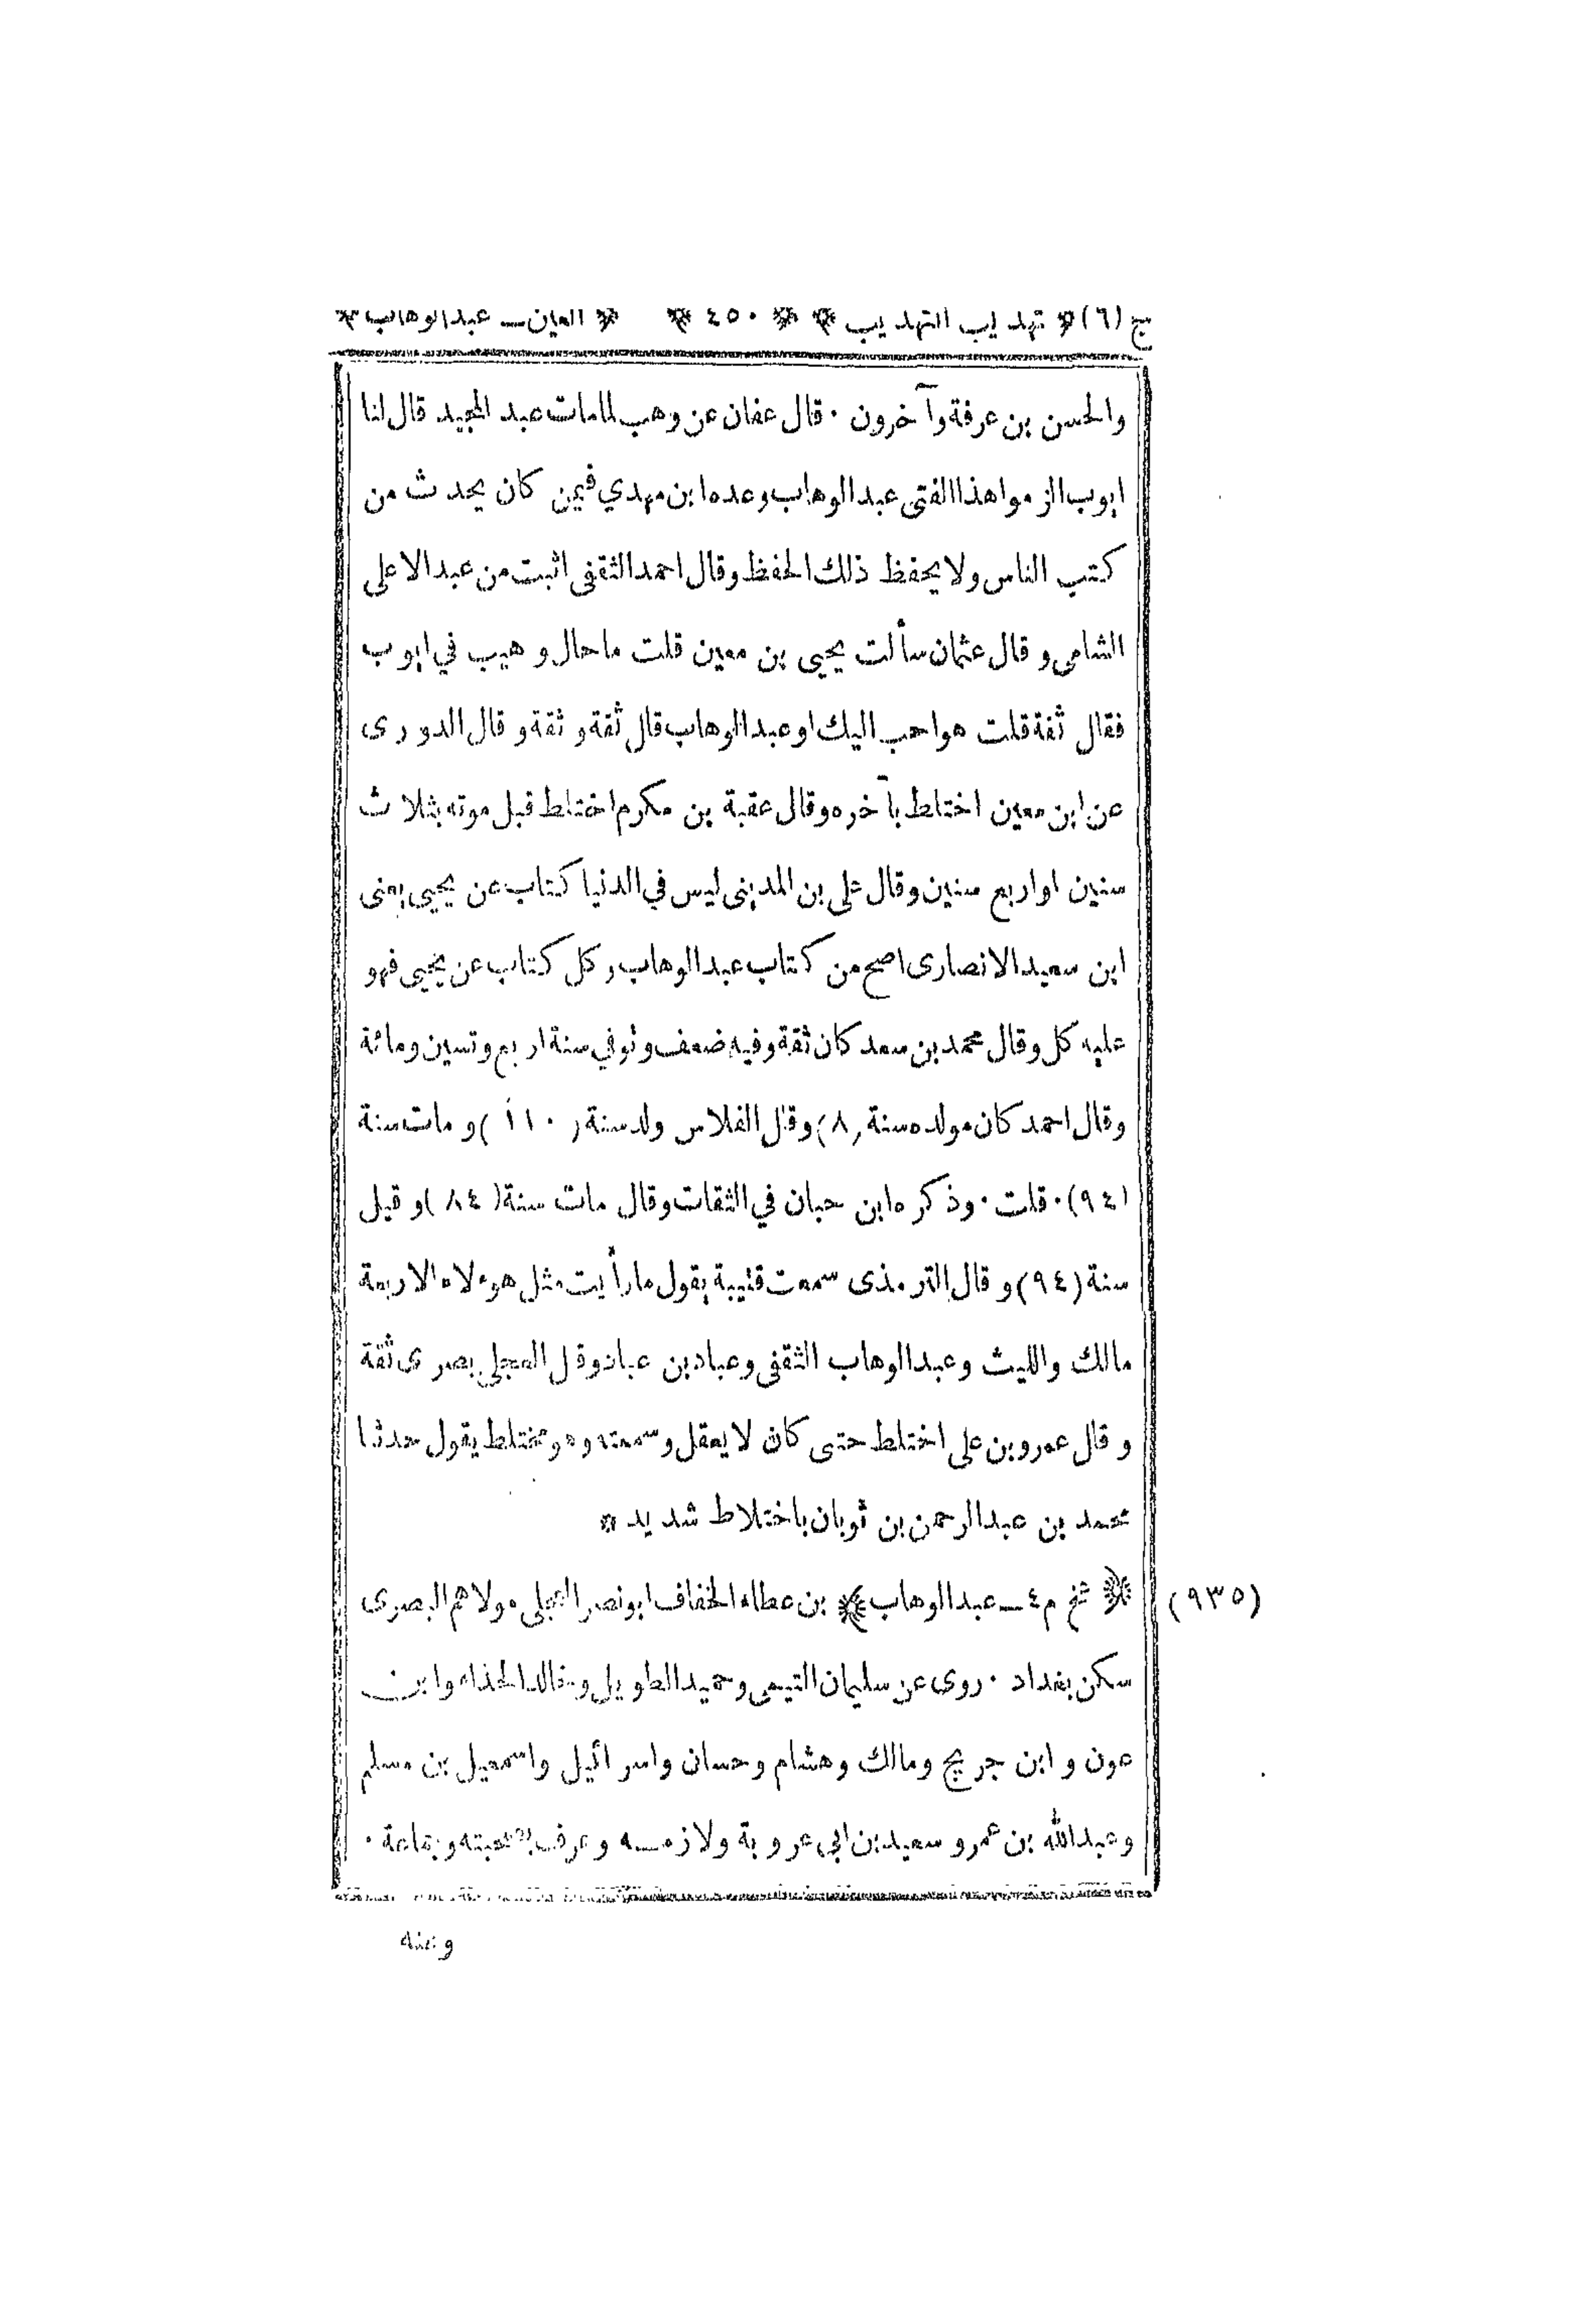 ج (٦) * تهذيب التهذيب * * ٤٥٠ * * العين ـ عبدالوهاب *
والحسن بن عرفة وآخرون . قال عفان عن وهب لمامات عبد المجيد قال لنا
ايوب الزموا هذا الفتى عبدالوهاب وعده ابن مهدي فيمن كان يحدث من
كتب الناس ولا يحفظ ذلك الحفظ وقال احمد الثقفى اثبت من عبدالاعلى
الشامى و قال عثمان سألت يحيى بن معين قلت ما حال وهيب في ايوب
فقال ثقة قلت هو احب اليك او عبدالوهاب قال ثقة و ثقة و قال الدورى
عن ابن معين اختلط بآخره وقال عقبة بن مكرم اختلط قبل موته بثلاث
سنين او اربع سنين وقال على بن المدينى ليس في الدنيا كتاب عن يحيى يعنى
ابن سعيد الانصارى اصح من كتاب عبدالوهاب وكل كتاب عن يحيى فهو
عليه كل وقال محمد بن سعد كان ثقة وفيه ضعف وتوفي سنة اربع وتسين ومائة
وقال احمد كان مولده سنة (٨) وقال الفلاس ولد سنة (١١٠) و مات سنة
(٩٤) . قلت . وذكره ابن حبان في الثقات وقال مات سنة (٨٤) و قيل
سنة (٩٤) و قال الترمذى سمعت قتيبة يقول ما رأيت مثل هوءلاء الاربعة
مالك والليث وعبدالوهاب الثقفى وعباد بن عباد وقال العجلى بصرى ثقة
و قال عمرو بن على اختلط حتى كان لا يعقل وسمعته وهو مختلط يقول حدثنا
محمد بن عبدالرحمن بن ثوبان باختلاط شديد *
(٩٣٥) * عخ م ٤ ـ عبدالوهاب * بن عطاء الخفاف ابونصر العجلى مولاهم البصرى
سكن بغداد . روى عن سليمان التيمى وحميد الطويل وخالد الحذاء وابن
عون و ابن جريج ومالك وهشام وحسان واسرائيل واسمعيل بن مسلم
وعبدالله بن عمرو سعيد بن ابي عروبة ولازمه وعرف بصحبته وجماعة .
وعنه